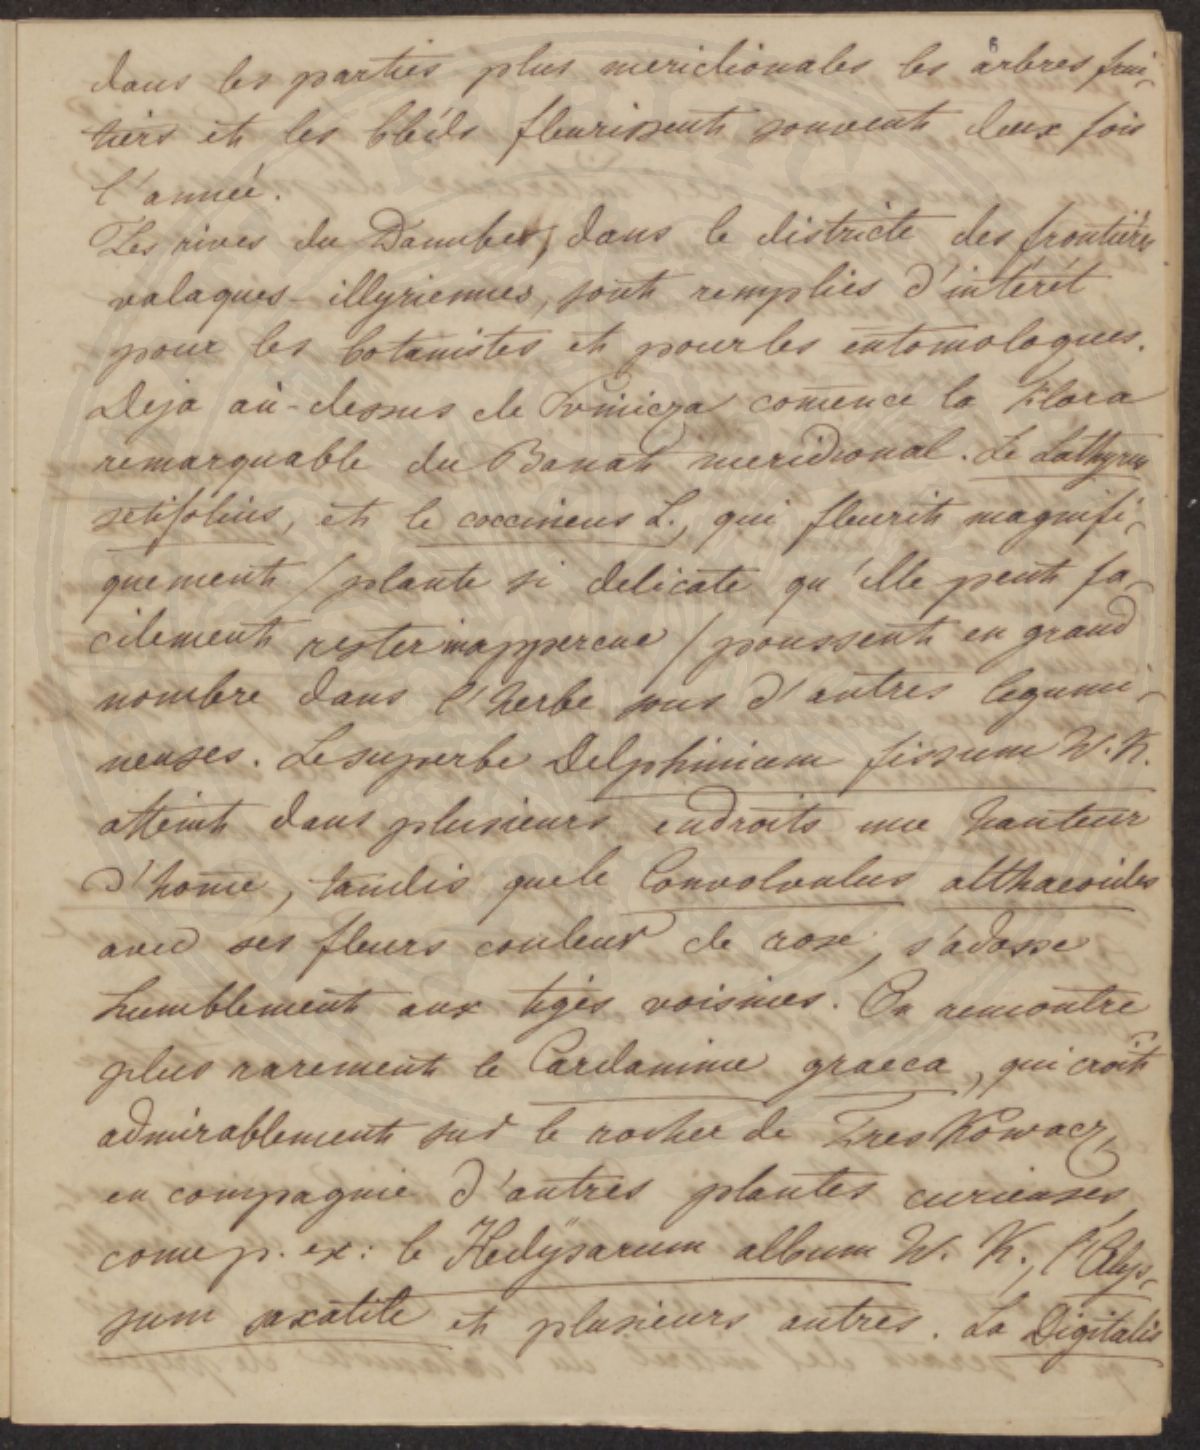 dans les parties plus meridionales les arbres frui-
tiers et les bléds fleurissent souvent deux fois
l'année.
Les rives du Danube, dans le districte des frontières
valaques-illyriennes, sont remplies d'intérêt
pour les botanistes et pour les entomologues.
Deja au-dessus de comence la Flora
remarquable du Banat meridional. Le Lathyrus
setifolius, et le coccineus L., qui fleurit magnifi-
quement / plante si delicate qu'elle peut fa-
cilement rester inappercue / poussent en grand
nombre dans l'herbe sous d'autres legumi-
neuses. Le superbe Delphinium fissum W. K.
atteint dans plusieurs endroits une hauteur
d'home, tandis que le Convolvulus althaeoides
avec ses fleurs couleur de rose, s'adosse
humblement aux tiges voisines. On rencontre
plus rarement le Cardamine graeca, qui croit
admirablement sur le rocher de Treskowacz,
en compagnie d'autres plantes curieuses,
come p. ex: le Hedysarum album W. K., l'Alys-
sum saxatile et plusieurs autres. La Digitalis